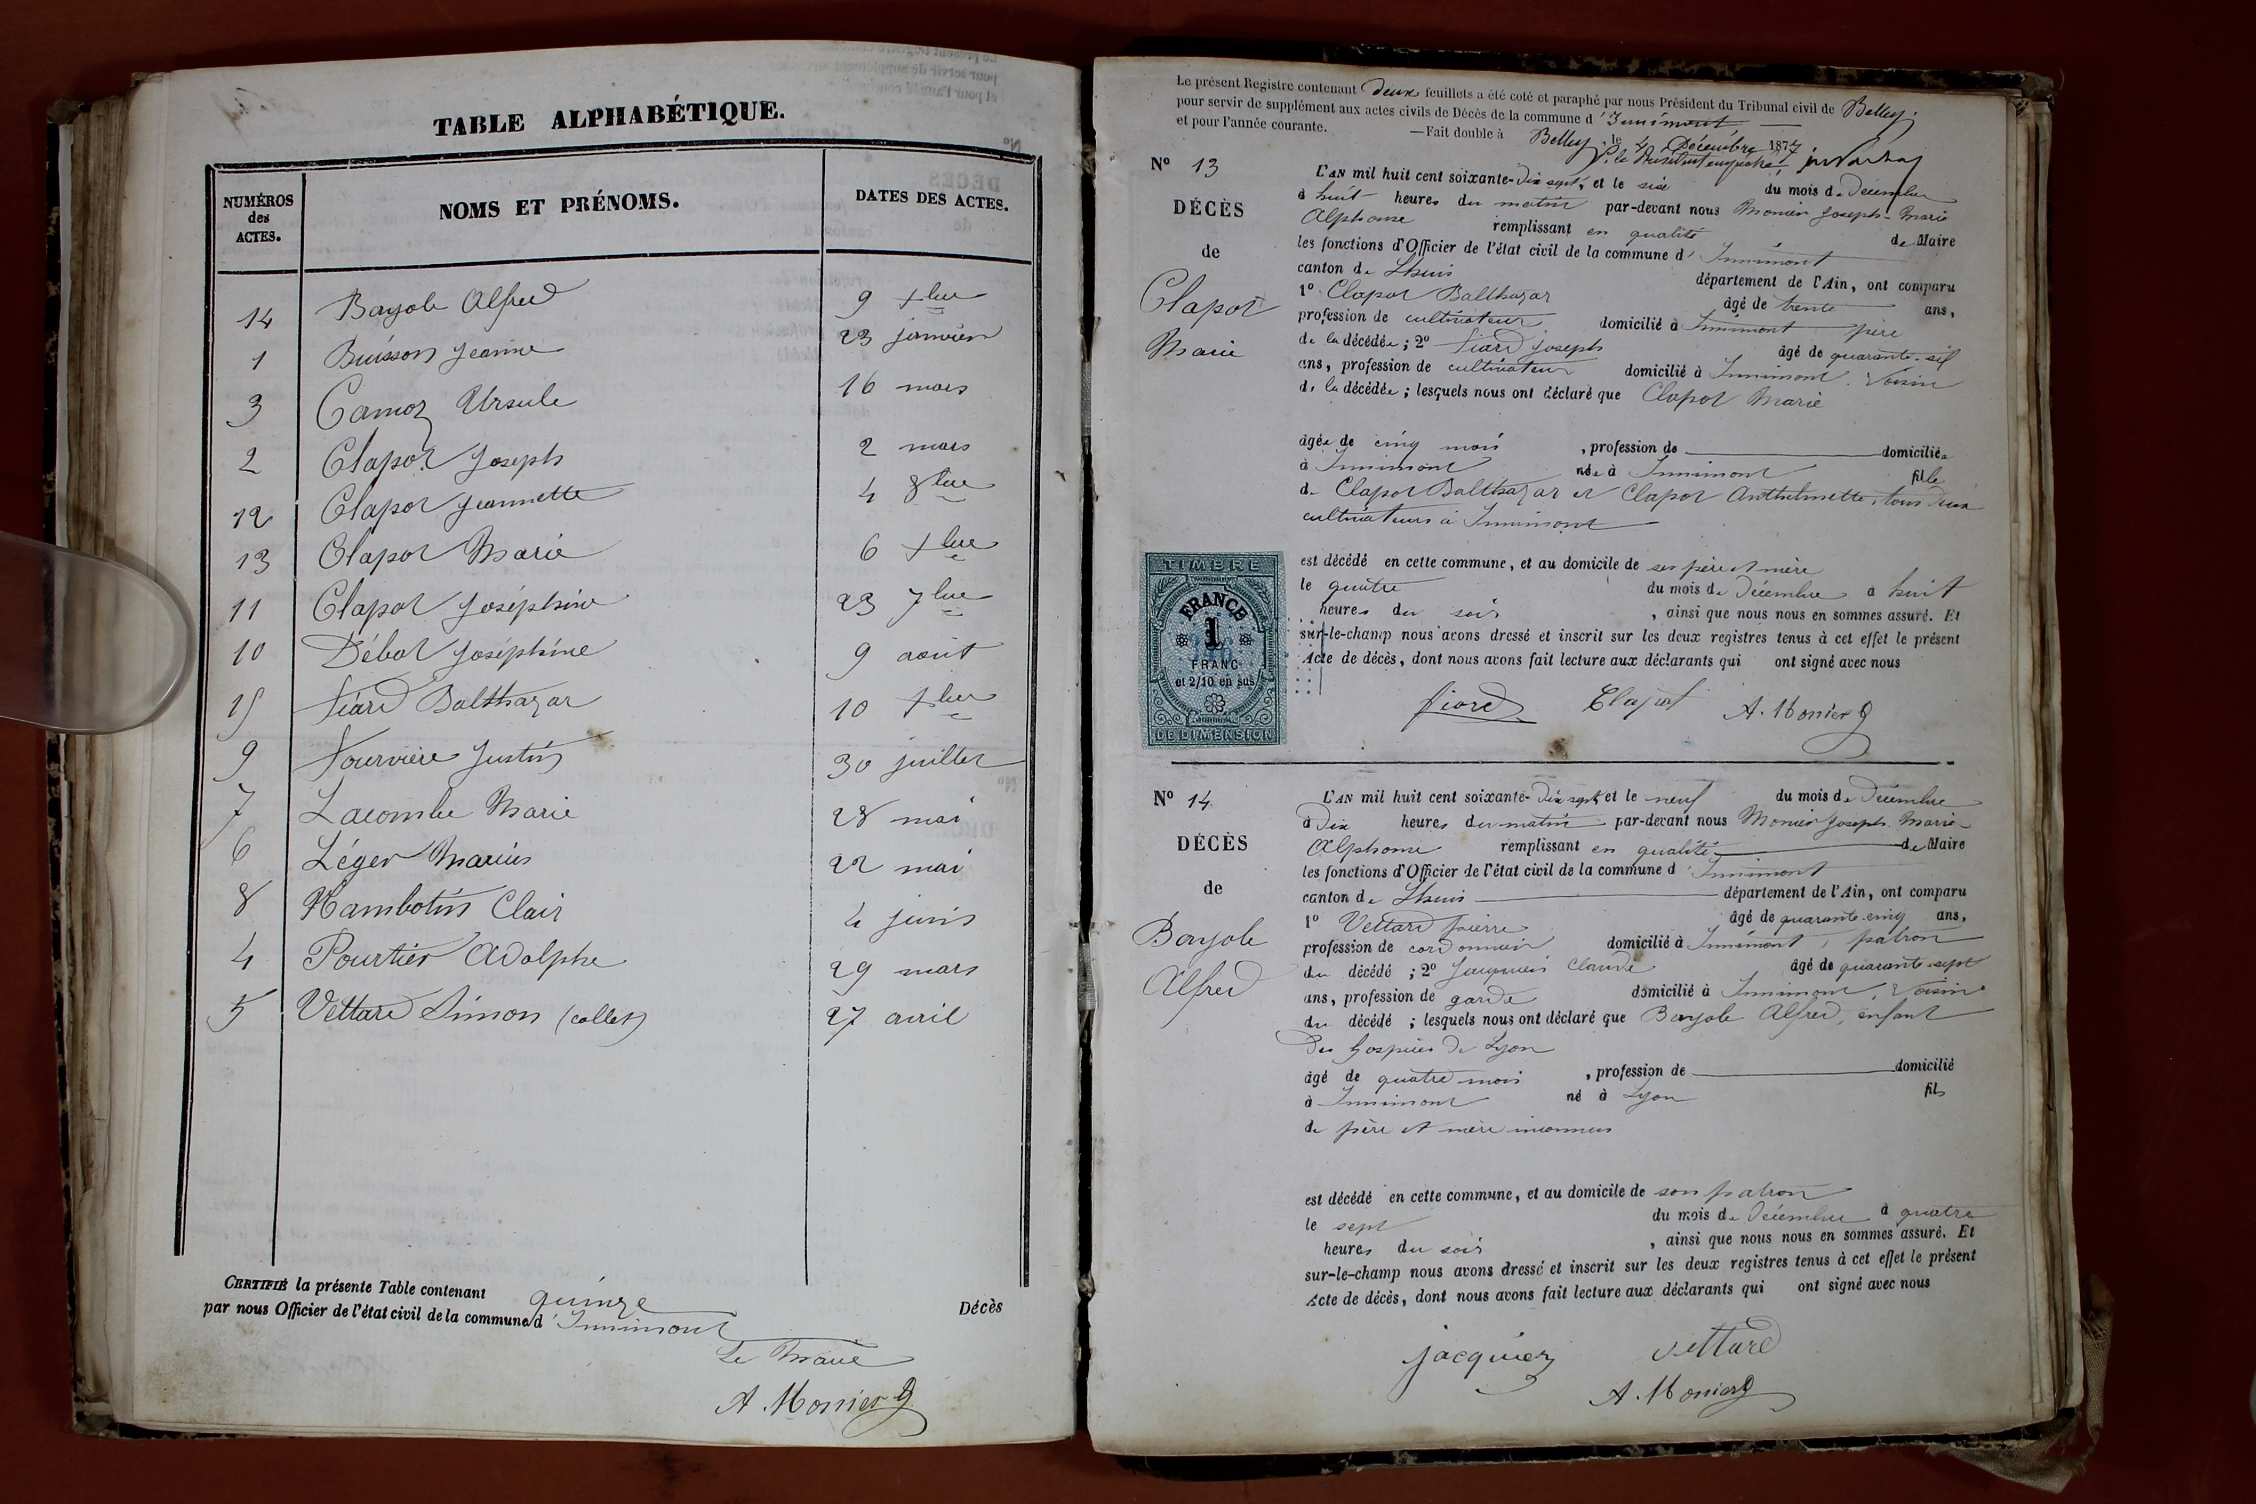 TABLE ALPHABÉTIQUE.
NUMÉROS des ACTES.
NOMS ET PRÉNOMS.
DATES DES ACTES.
14 Bayole Alfred 9 xbre
1 Buisson Jeanne 23 janvier
3 Camoz Ursule 16 mars
2 Clapot Joseph 2 mars
12 Clapot Jeannette 4 8bre
13 Clapot Marie 6 xbre
11 Clapot Joséphine 23 7bre
10 Débot Joséphine 9 août
15 Fiard Balthazar 10 xbre
9 Fourvière Justin 30 juillet
7 Lacombe Marie 28 mai
6 Léger Marius 22 mai
8 Hambotin Clair 4 juin
4 Pourtier Adolphe 29 mars
5 Vettard Simon (collet) 27 avril
CERTIFIÉ la présente Table contenant quinze Décès
par nous Officier de l'état civil de la commune d'Innimont
Le Maire
A. Monier
Le présent Registre contenant deux feuillets a été coté et paraphé par nous Président du Tribunal civil de Belley,
pour servir de supplément aux actes civils de Décès de la commune d'Innimont
et pour l'année courante. —Fait double à Belley, le 4 Décembre 1877
P. le Président empêché
N° 13
DÉCÈS
de
Clapot
Marie
L'AN mil huit cent soixante-dix sept, et le six du mois de Décembre
à huit heures du matin par-devant nous Monier Joseph-Marie
Alphonse remplissant en qualité de Maire
les fonctions d'Officier de l'état civil de la commune d'Innimont
canton de Lhuis département de l'Ain, ont comparu
1° Clapot Balthazar âgé de trente ans,
profession de cultivateur domicilié à Innimont père
de la décédée; 2° Fiard Joseph âgé de quarante-six
ans, profession de cultivateur domicilié à Innimont, voisin
de la décédée; lesquels nous ont déclaré que Clapot Marie
âgée de cinq mois, profession de domiciliée
à Innimont née à Innimont fille
de Clapot Balthazar et Clapot Anthelmette, tous deux
cultivateurs à Innimont
est décédé en cette commune, et au domicile de ses père et mère
le quatre du mois de Décembre à huit
heures du soir, ainsi que nous nous en sommes assuré. Et
sur-le-champ nous avons dressé et inscrit sur les deux registres tenus à cet effet le présent
Acte de décès, dont nous avons fait lecture aux déclarants qui ont signé avec nous
fiard Clapot A. Monier
TIMBRE
FRANCE
1
FRANC
et 2/10 en sus
DE DIMENSION
N° 14
DÉCÈS
de
Bayole
Alfred
L'AN mil huit cent soixante-dix sept et le neuf du mois de Décembre
à dix heures du matin par-devant nous Monier Joseph Marie
Alphonse remplissant en qualité de Maire
les fonctions d'Officier de l'état civil de la commune d'Innimont
canton de Lhuis département de l'Ain, ont comparu
1° Vettard pierre âgé de quarante-cinq ans,
profession de cordonnier domicilié à Innimont, patron
du décédé; 2° Jacquier Claude âgé de quarante-sept
ans, profession de garde domicilié à Innimont, voisin
du décédé; lesquels nous ont déclaré que Bayole Alfred, enfant
des hospices de Lyon
âgé de quatre mois, profession de domicilié
à Innimont né à Lyon fils
de père et mère inconnus
est décédé en cette commune, et au domicile de son patron
le sept du mois de Décembre à quatre
heures du soir, ainsi que nous nous en sommes assuré. Et
sur-le-champ nous avons dressé et inscrit sur les deux registres tenus à cet effet le présent
Acte de décès, dont nous avons fait lecture aux déclarants qui ont signé avec nous
jacquier vettard
A. Monier